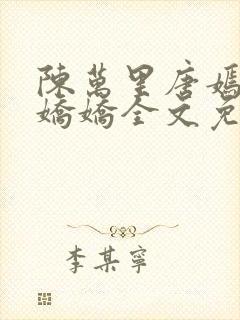 陳萬里唐嫣
嬌嬌全文免
李某寧